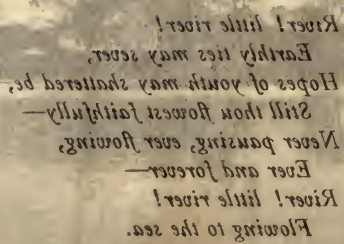 River! little river!
Earthly ties may sever,
Hopes of youth may shattered be,
Still thou flowest faithfully—
Never pausing, ever flowing,
Ever and forever—
River! little river!
Flowing to the sea.